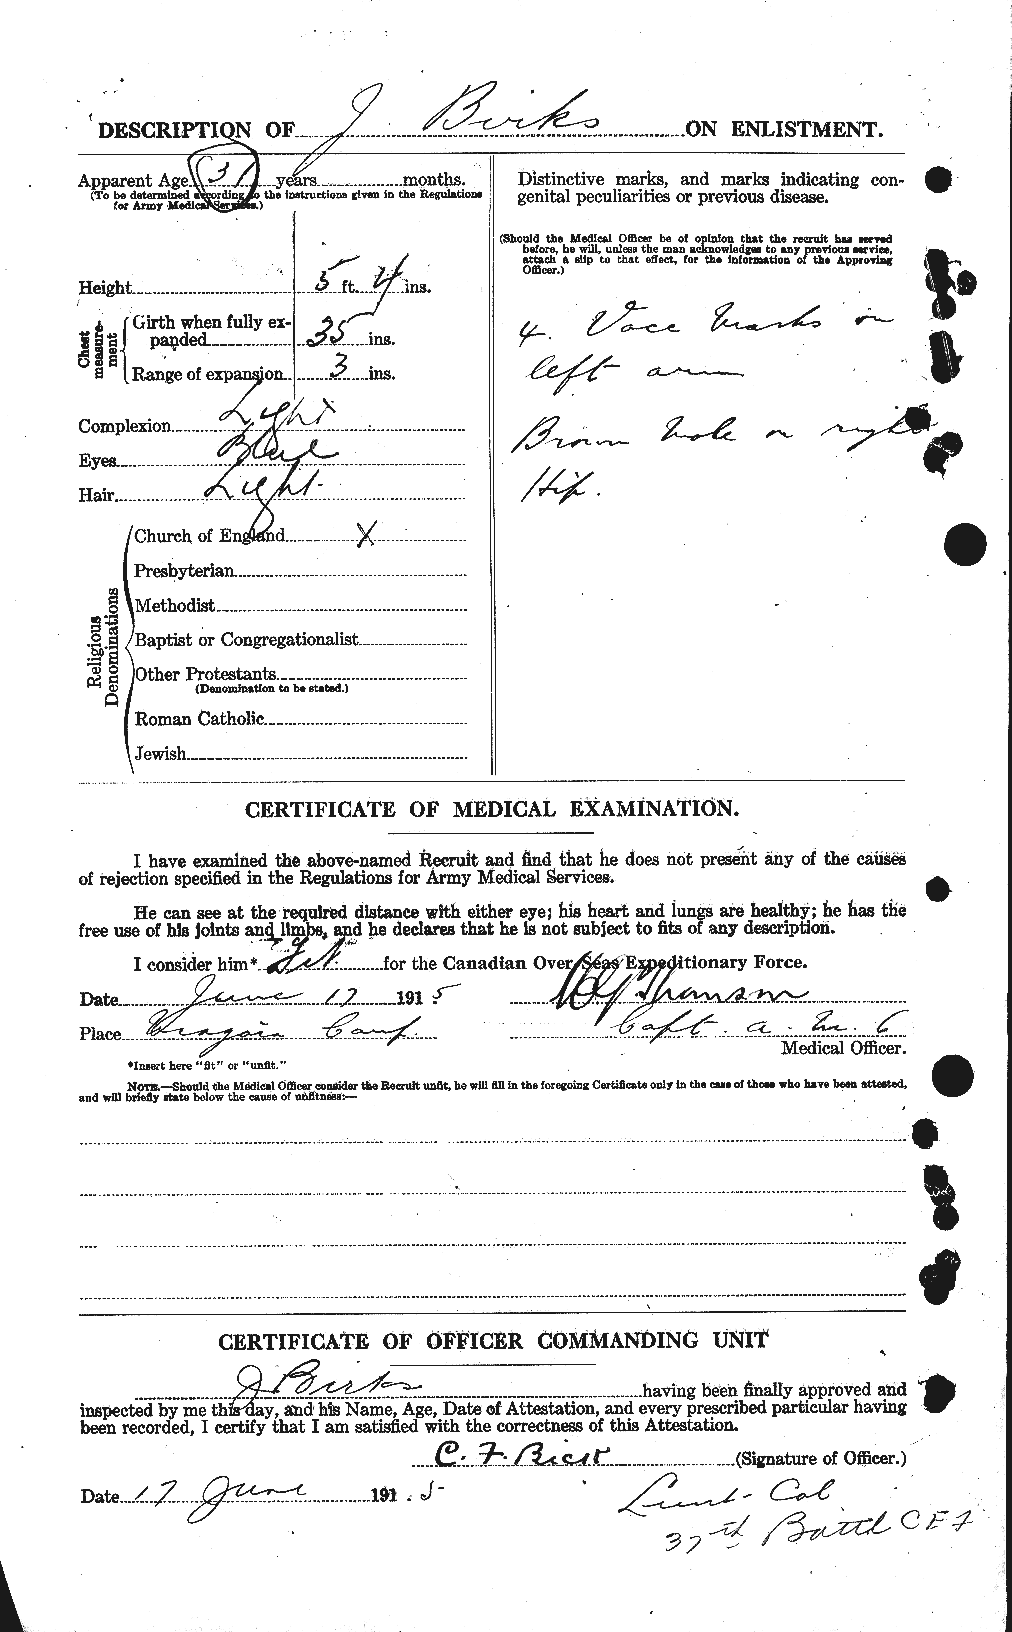 DESCRIPTION OF J Birks ON ENLISTMENT.
Apparent Age 31 years months.
(To be determined according to the instructions given in the Regulations
for Army Medical Services.)
Height 5 ft. 4 ins.
Chest measurement
Girth when fully ex-
panded 35 ins.
Range of expansion 3 ins.
Complexion Light
Eyes Blue
Hair Light
Religious Denominations
Church of England X
Presbyterian
Methodist
Baptist or Congregationalist
Other Protestants
(Denomination to be stated.)
Roman Catholic
Jewish
Distinctive marks, and marks indicating con-
genital peculiarities or previous disease.
(Should the Medical Officer be of opinion that the recruit has served
before, he will, unless the man acknowledges to any previous service,
attach a slip to that effect, for the information of the Approving
Officer.)
4. Vacc Marks on
left arm
Brown Mole on right
Hip.
CERTIFICATE OF MEDICAL EXAMINATION.
I have examined the above-named Recruit and find that he does not present any of the causes
of rejection specified in the Regulations for Army Medical Services.
He can see at the required distance with either eye; his heart and lungs are healthy; he has the
free use of his joints and limbs, and he declares that he is not subject to fits of any description.
I consider him* Fit for the Canadian Over-Seas Expeditionary Force.
Date June 17 1915
Place Niagara Camp
Capt. A. M. C
Medical Officer.
*Insert here "fit" or "unfit."
NOTE.—Should the Medical Officer consider the Recruit unfit, he will fill in the foregoing Certificate only in the case of those who have been attested,
and will briefly state below the cause of unfitness:—
CERTIFICATE OF OFFICER COMMANDING UNIT
J Birks having been finally approved and
inspected by me this day, and his Name, Age, Date of Attestation, and every prescribed particular having
been recorded, I certify that I am satisfied with the correctness of this Attestation.
C. F. Bick (Signature of Officer.)
Date 17 June 191.5
Lieut-Col
37th Battl C E F